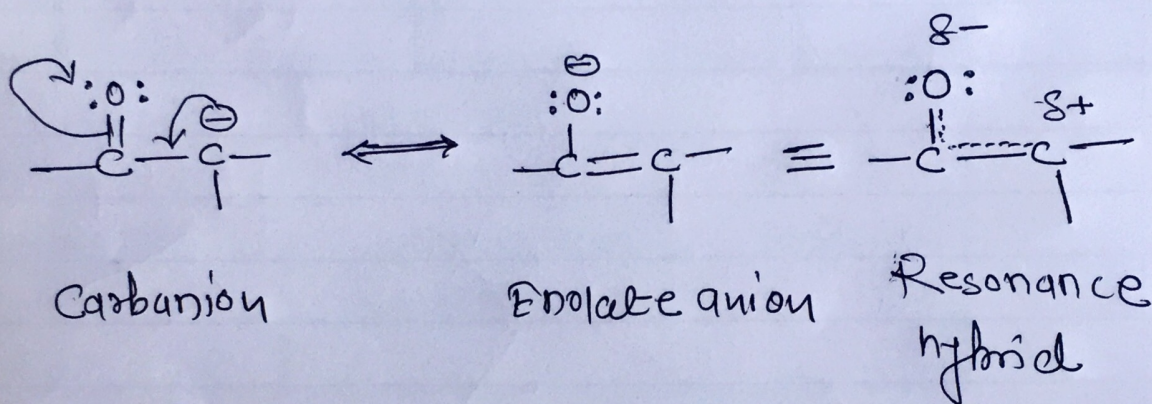 δ-
⊖
:O: :O: :O:
⊖ δ+
C C C C C C
Carbanion Enolate anion Resonance
hybrid